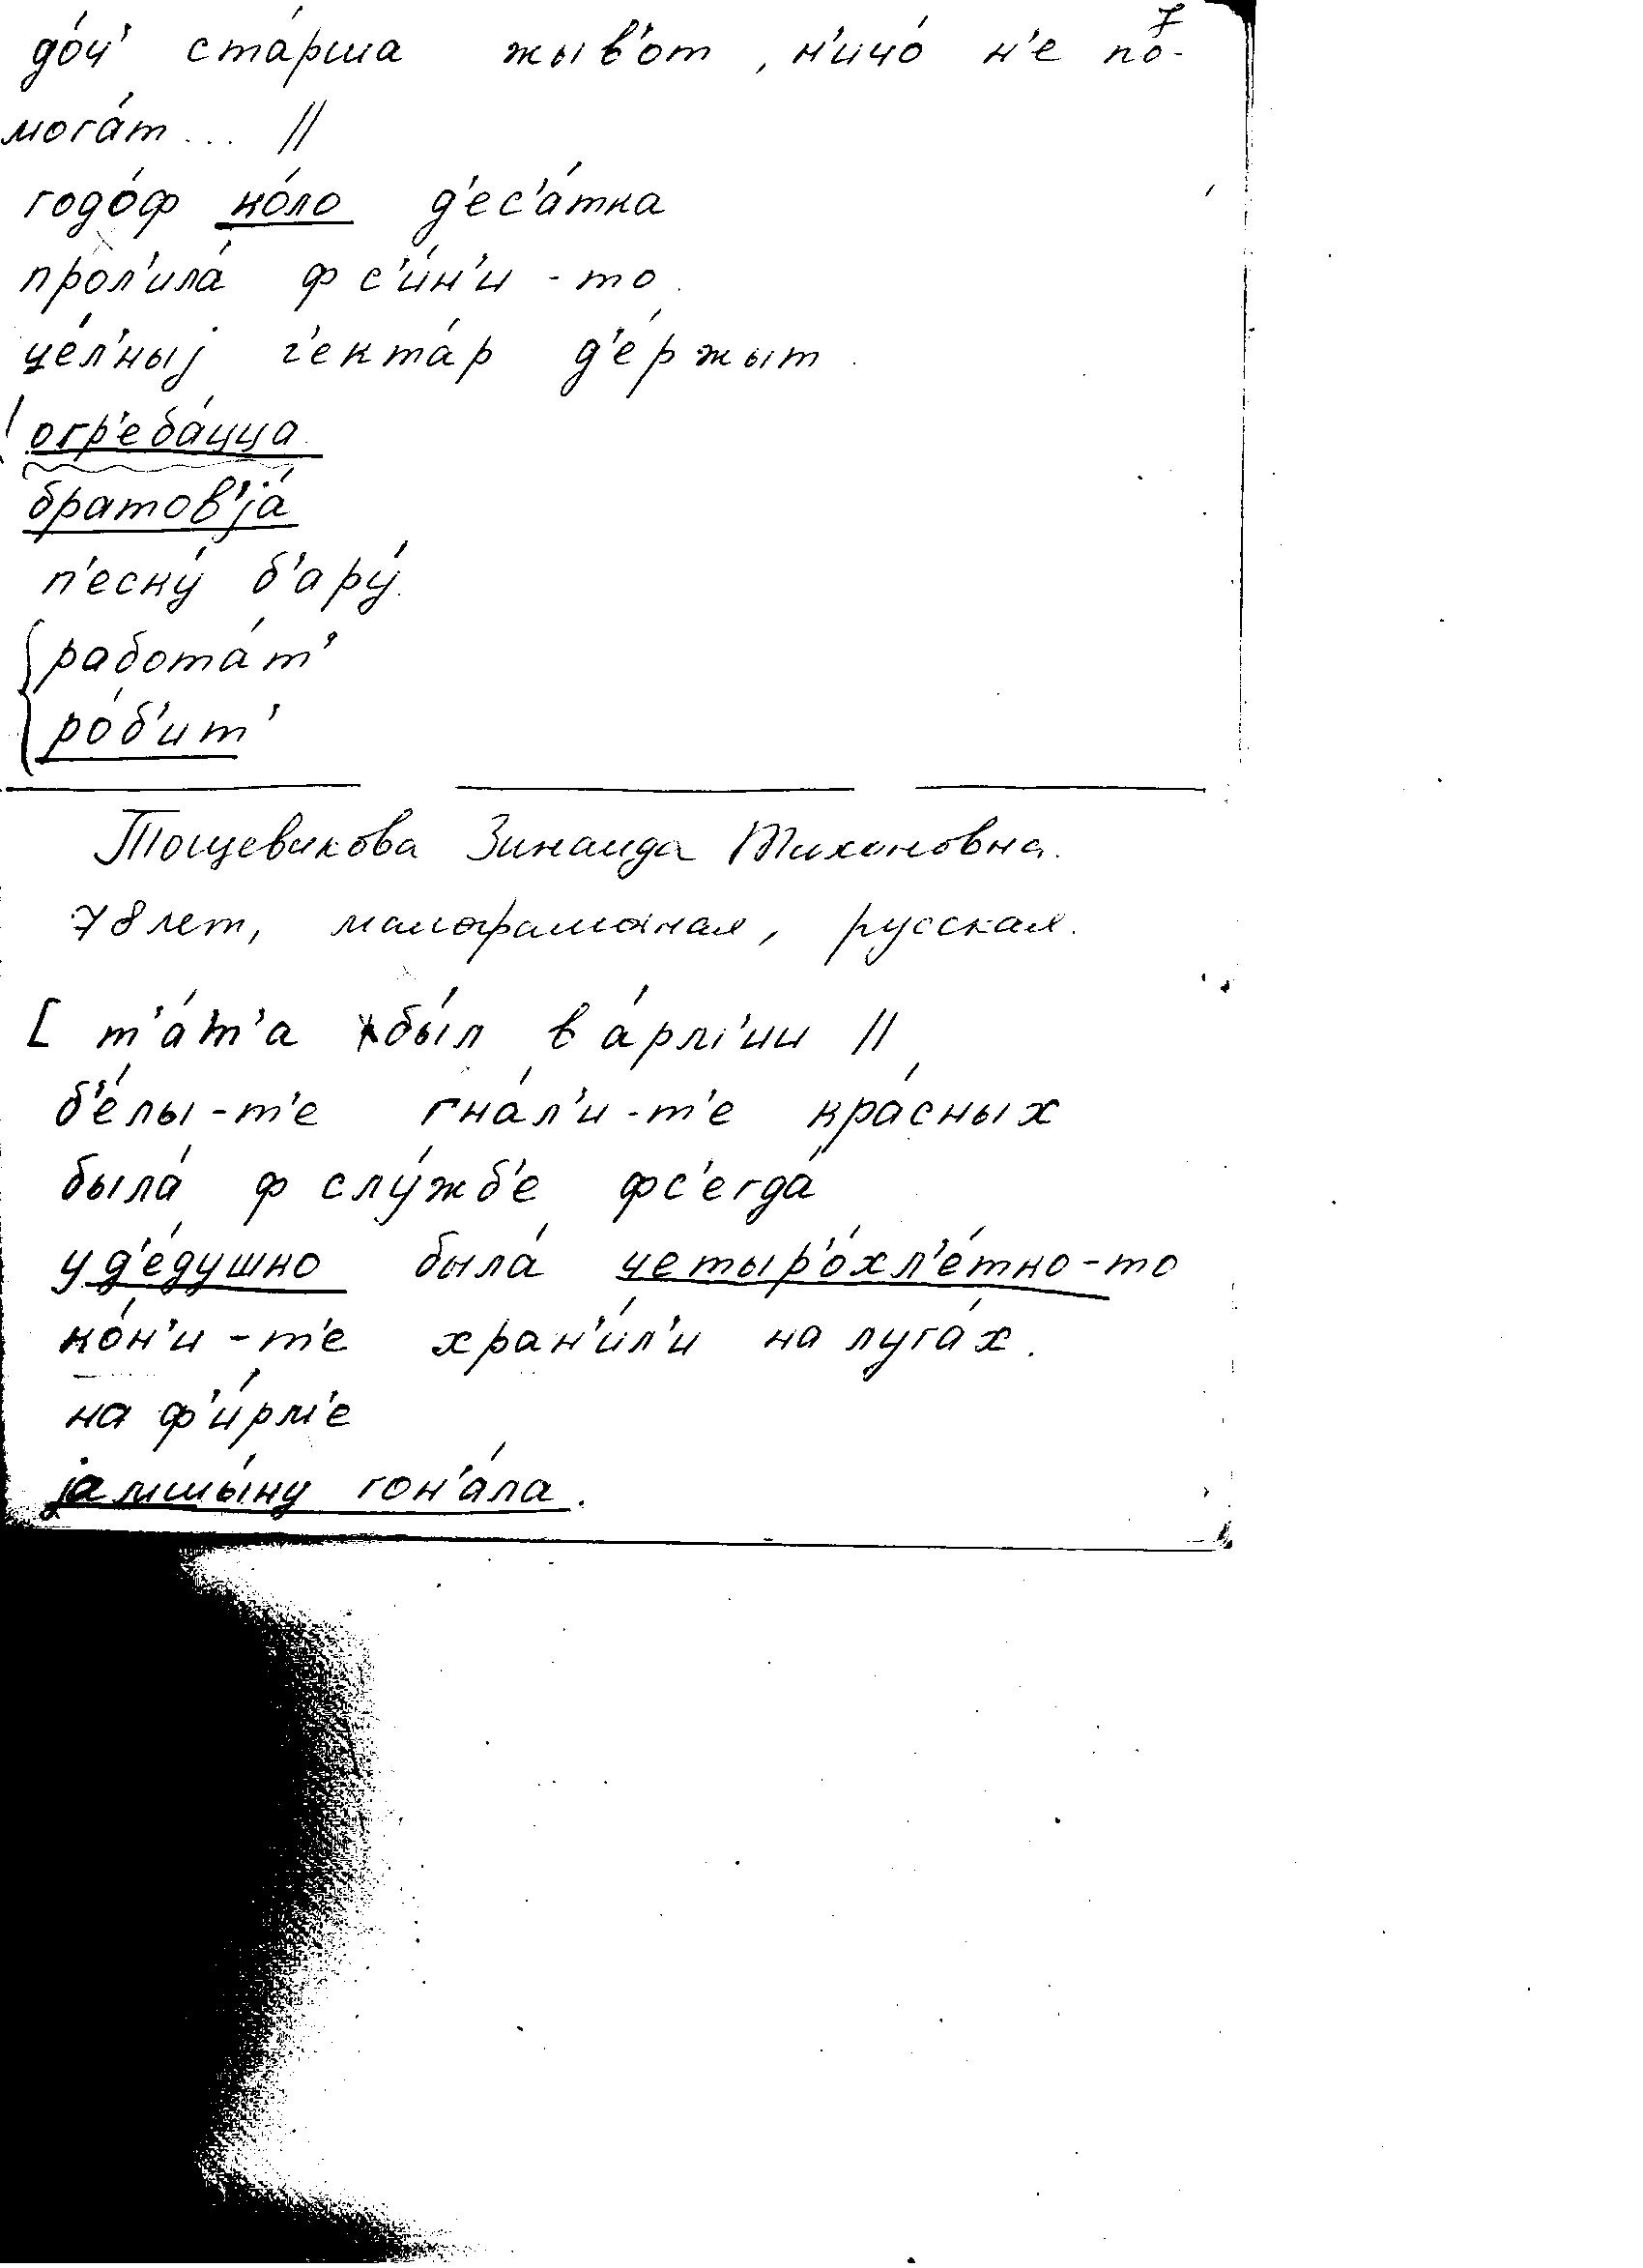 7
до́ч' ста́рша жыв'от, н'ичо́ н'е по-
мога́т... //
годо́ф ко́ло д'ес'а́тка
прол'ила́ ф с'и́н'и-то.
це́л'ныj г'екта́р д'е́ржыт.
огр'еба́цца
братов'jа́
п'еску́ б'ару́.
работа́т'
ро́б'ит'
Тощевикова Зинаида Тихоновна.
78 лет, малограмотная, русская.
[ т'а́т'а бы́л в а́рм'ии //
б'е́лы-т'е гна́л'и-т'е кра́сных
была́ ф слу́жб'е фс'егда́
у д'е́душко была́ четыр'о́хл'е́тно-то
ко́н'и-т'е хран'и́л'и на луга́х.
на ф'и́рм'е
jамшы́ну гон'а́ла.